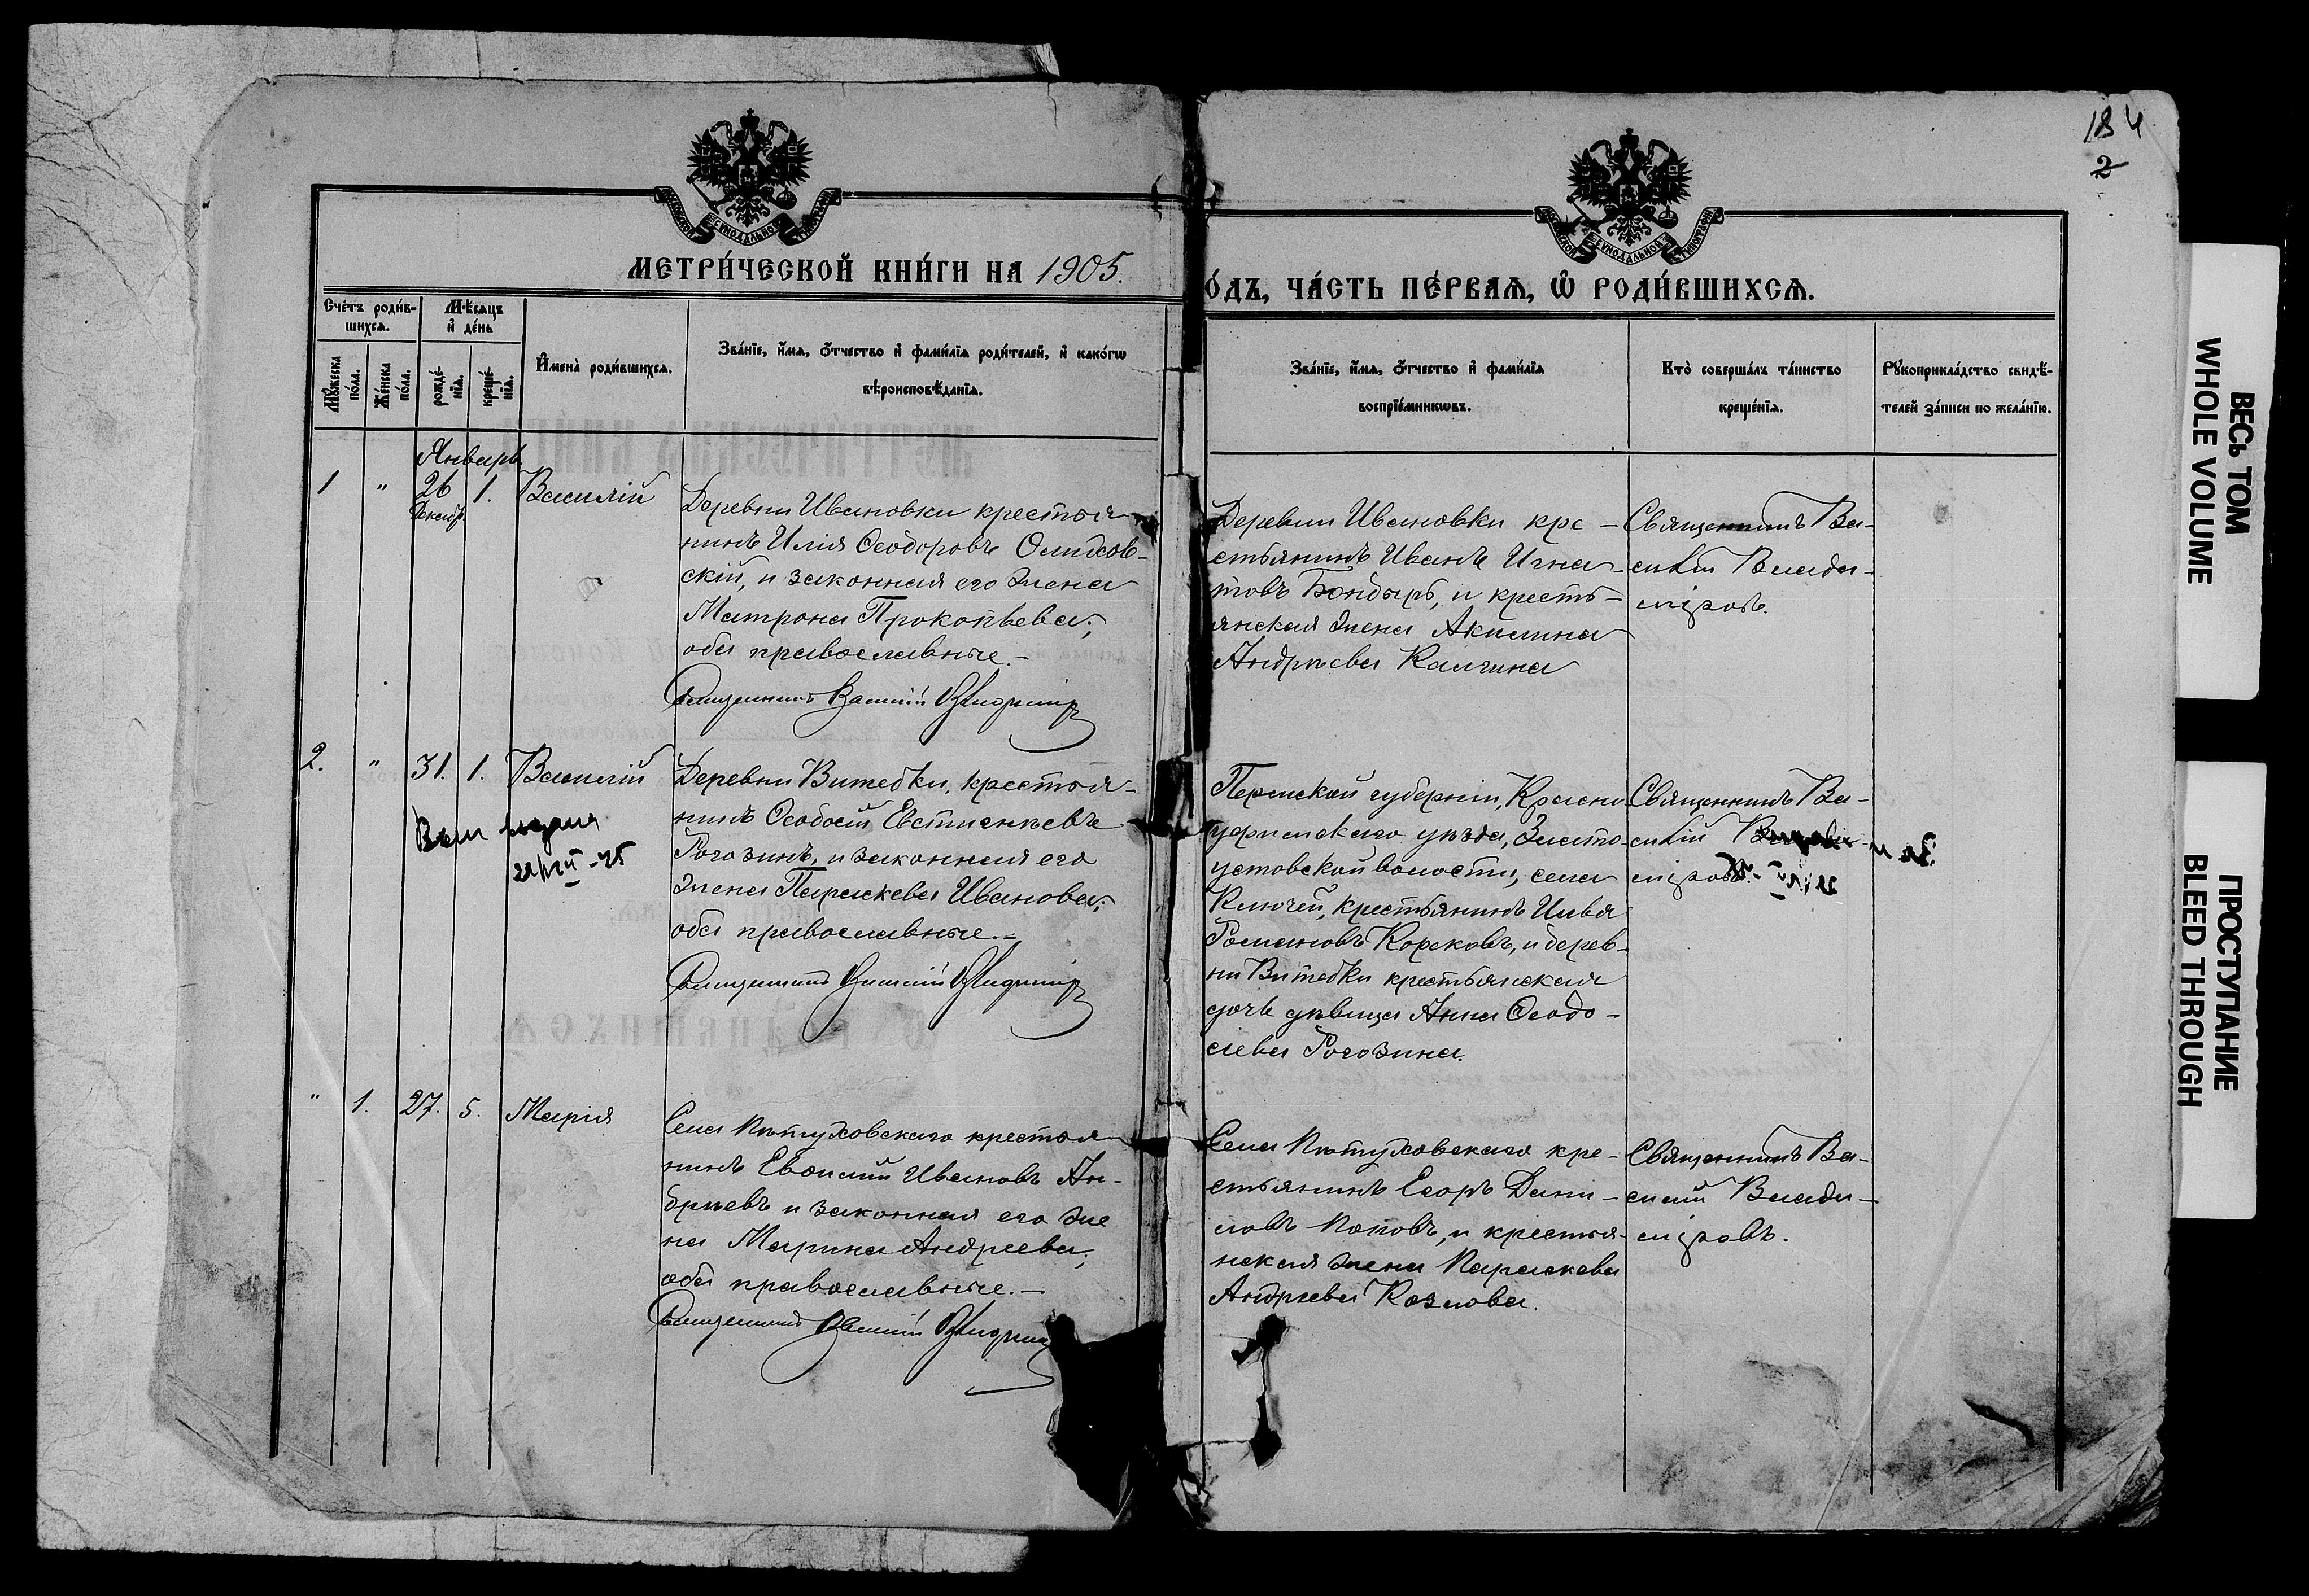 184
2
МЕТРИ́ЧЕСКОЙ КНИ́ГИ НА 1905.
О́ДЪ, ЧА́СТЬ ПЕ́РВАѦ, Ѽ РОДИ́ВШИХСѦ.
Сче́тъ роди́в-
шихсѧ.
Мꙋ́жеска
по́ла.
Же́нска
по́ла.
Мѣ́сѧцъ
и҆ де́нь
рожде́-
нїѧ.
креще́-
нїѧ.
И҆мена̀ роди́вшихсѧ.
Зва́нїе, и҆́мѧ, ѻ҆́тчество и҆ фами́лїѧ роди́телей, и҆ како́гѡ
вѣроисповѣ́данїѧ.
Зва́нїе, и҆́мѧ, ѻ҆́тчество и҆ фами́лїѧ
воспрїе́мникѡвъ.
Кто̀ соверша́лъ та́инство
креще́нїѧ.
Рꙋкоприкла́дство свидѣ́-
телей за́писи по жела́нїю.
Январь
1 " 26 1. Василій
Декабр.
Деревни Ивановки крестья
нинъ Илія Ѳеодоровъ
скій, и законная его жена
Матрона Прокопьева;
оба православные.–
Священникъ Василій Владимір
Деревни Ивановки кре-
стьянинъ Иванъ Игна-
товъ Бондырь, и кресть-
янская жена Акилина
Андреева Калгина
Священникъ Ва-
силій Влади-
міровъ.
2. " 31. 1. Василій
21/VII-45
Деревни Витебки, крестья-
нинъ Ѳеодосій Евстигнѣевъ
Рогозинъ, и законная его
жена Параскева Иванова;
оба православные.–
Священникъ Василій Владимір
Пермской губерніи, Красно
уфимскаго уѣзда, Злато-
устовской волости, села
Ключей, крестьянинъ Илья
Романовъ Корсковъ, и дерев-
ни Витебки крестьянская
дочь дѣвица Анна Ѳеодо-
сіева Рогозина.
Священникъ Ва-
силій
міровъ.
" 1. 27. 5. Марія
Села Пѣтуховскаго крестья
нинъ Евѳимій Ивановъ Ан-
дреевъ и законная его же
на Марина Андреева;
оба православные.–
Священникъ Василій Владимір
Села Пѣтуховскаго кре-
стьянинъ Егоръ Дани-
ловъ Поповъ, и крестья-
нская жена Параскева
Андреева Козлова.
Священникъ Ва-
силій Влади-
міровъ.
ВЕСЬ ТОМ
WHOLE VOLUME
ПРОСТУПАНИЕ
BLEED THROUGH